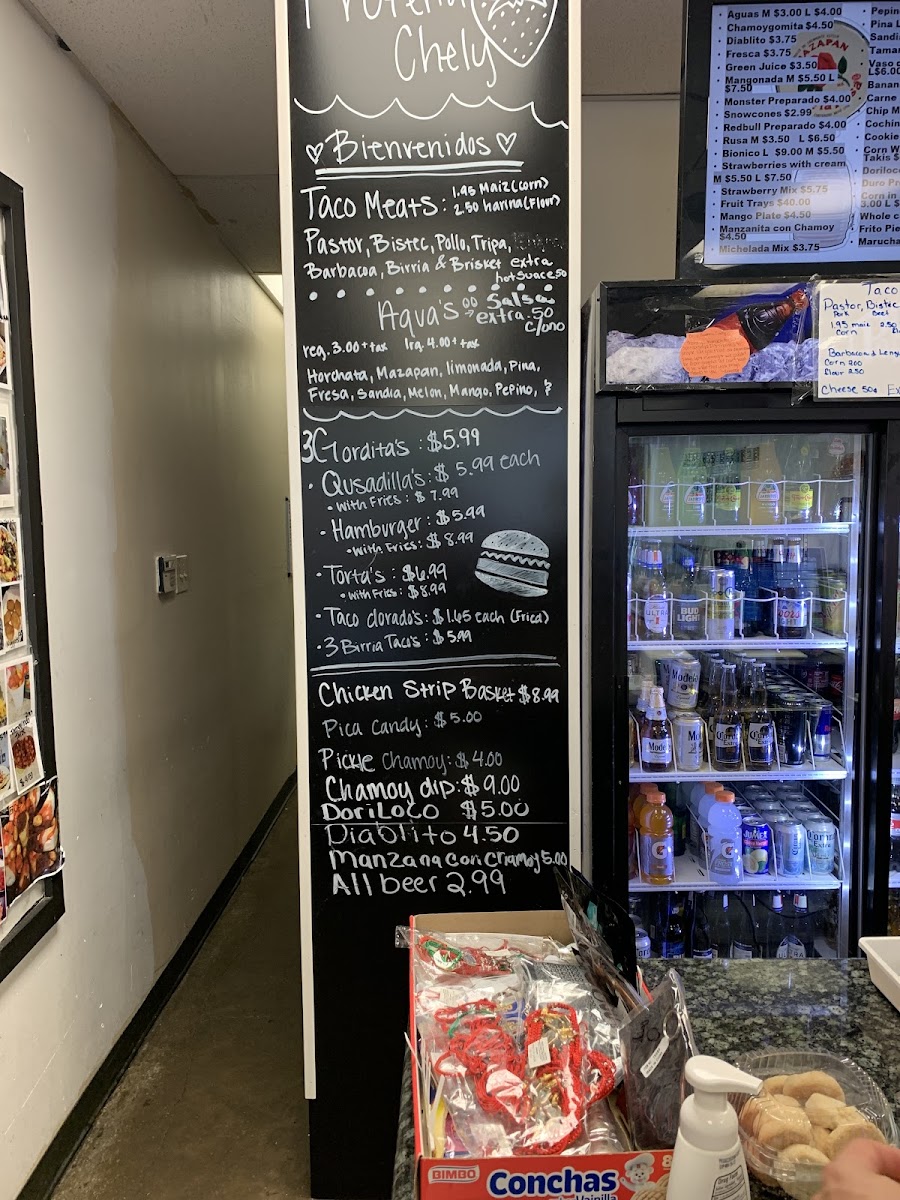 Chely
Bienvenidos
Taco Meats: 1.95 Maiz (corn)
2.50 harina (Flour)
Pastor, Bistec, Pollo, Tripa,
Barbacoa, Birria & Brisket extra
hot suace .50
Aqua's
Salsa
extra .50
c/uno
reg. 3.00 + tax lrg. 4.00 + tax
Horchata, Mazapan, limonada, Pina,
Fresa, Sandia, Melon, Mango, Pepino, ?
3 Gordita's : $5.99
• Qusadilla's : $ 5.99 each
• With Fries : $ 7.99
• Hamburger : $ 5.99
• With Fries : $ 8.99
• Torta's : $6.99
• with Fries : $8.99
• Taco dorado's : $1.65 each (Fried)
• 3 Birria Taco's : $ 5.99
Chicken Strip Basket $8.99
Pica Candy : $ 5.00
Pickle Chamoy : $ 4.00
Chamoy dip : $ 9.00
DoriLoco $5.00
Diablito 4.50
Manzana con Chamoy 5.00
All beer 2.99
• Aguas M $3.00 L $4.00
• Chamoygomita $4.50
• Diablito $3.75
• Fresca $3.75
• Green Juice $3.50
• Mangonada M $5.50 L
$7.50
• Monster Preparado $4.00
• Snowcones $2.99
• Redbull Preparado $4.00
• Rusa M $3.50 L $6.50
• Bionico L $9.00 M $5.50
• Strawberries with cream
M $5.50 L $7.50
• Strawberry Mix $5.75
• Fruit Trays $40.00
• Mango Plate $4.50
• Manzanita con Chamoy
$4.50
• Michelada Mix $3.75
AZAPAN
• Pepin
• Pina L
• Sandi
• Tama
• Vaso
L$6.00
• Banan
• Carne
• Chip M
• Cochin
• Cookie
• Corn W
• Takis $
• Doriloc
• Duro Pr
• Corn in
3.00 L $
• Whole c
• Frito Pie
• Marucha
Taco
Pastor, Bistec
Pork Beef
1.95 maiz 2.50
Corn
Barbacoa & Lengua
Corn 2.00
flour 2.50
Cheese 50¢ Ex
ULTRA
BUD
LIGHT
Modelo
Modelo
Corona
Extra
Corona
G
G
BIMBO
Conchas
Vainilla